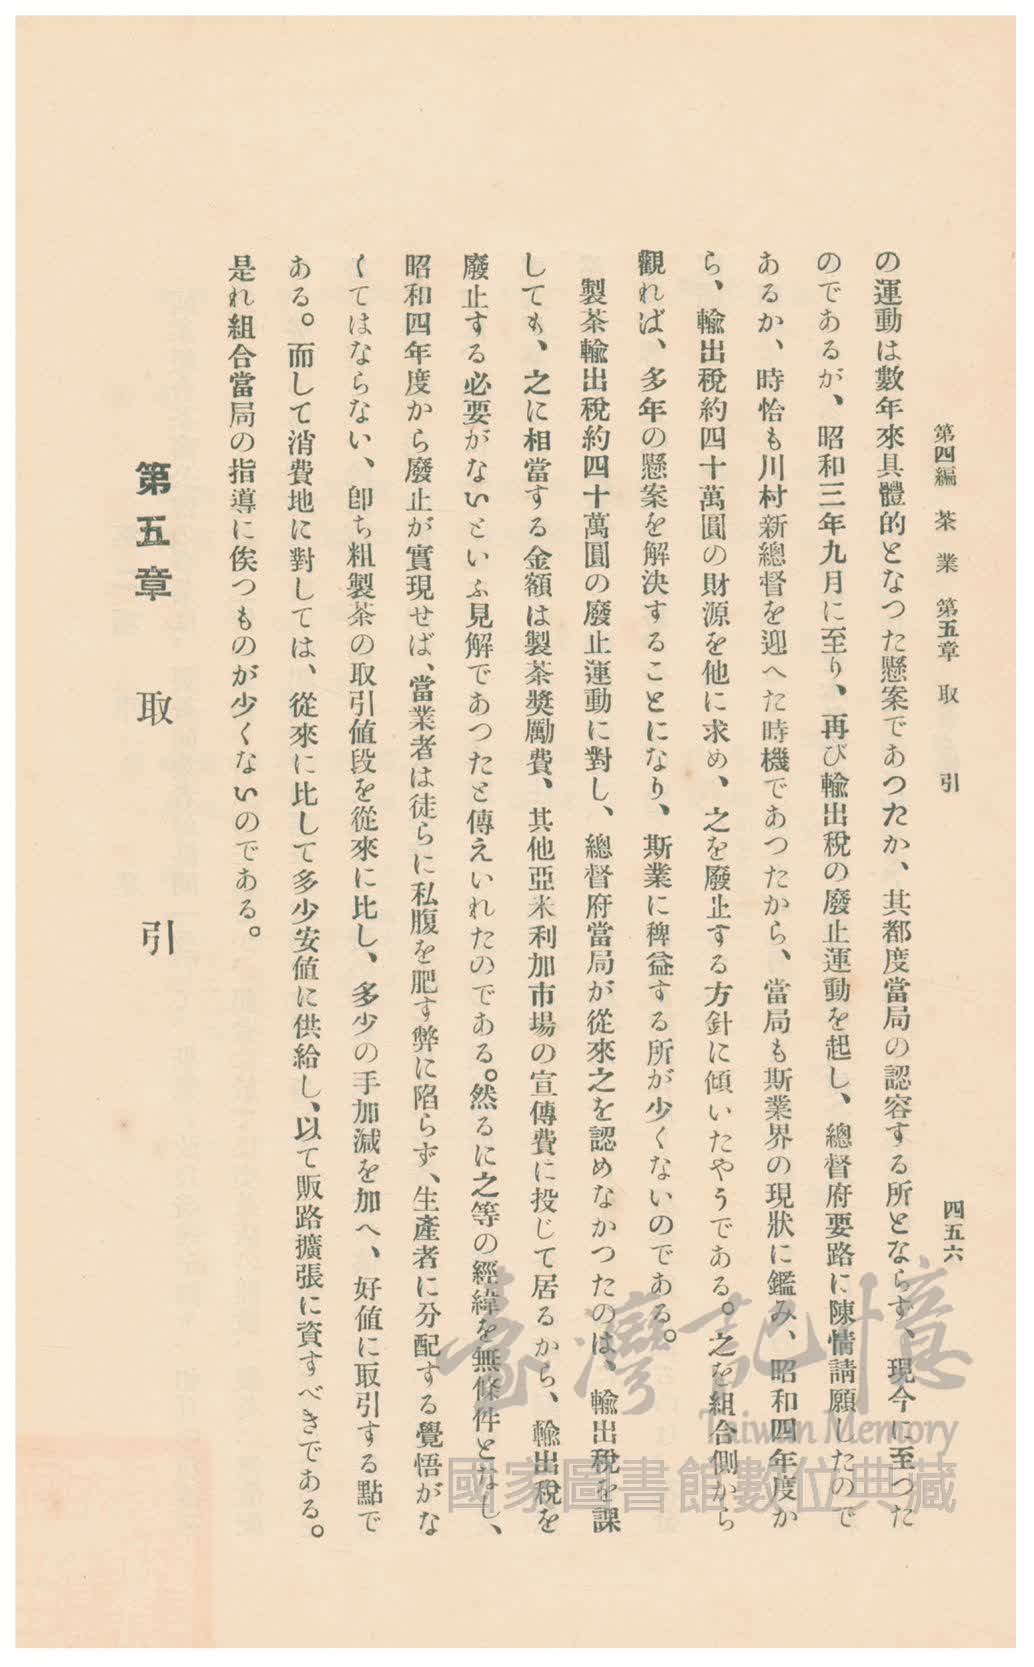 第四編 茶業 第五章 取引
四五六
の運動は數年來具體的となつた懸案であつたか、其都度當局の認容する所とならず、現今に至つた
のであるが、昭和三年九月に至り、再び輸出稅の廢止運動を起し、總督府要路に陳情請願したので
あるか、時恰も川村新總督を迎へた時機であつたから、當局も斯業界の現狀に鑑み、昭和四年度か
ら、輸出稅約四十萬圓の財源を他に求め、之を廢止する方針に傾いたやうである。之を組合側から
觀れば、多年の懸案を解決することになり、斯業に稗益する所が少くないのである。
製茶輸出稅約四十萬圓の廢止運動に對し、總督府當局が從來之を認めなかつたのは、輸出稅を課
しても、之に相當する金額は製茶獎勵費、其他亞米利加市場の宣傳費に投じて居るから、輸出稅を
廢止する必要がないといふ見解であつたと傳えいれたのである。然るに之等の經緯を無條件となし、
昭和四年度から廢止が實現せば、當業者は徒らに私腹を肥す弊に陷らず、生產者に分配する覺悟がな
くてはならない、卽ち粗製茶の取引値段を從來に比し、多少の手加減を加へ、好値に取引する點で
ある。而して消費地に對しては、從來に比して多少安値に供給し、以て販路擴張に資すべきである。
是れ組合當局の指導に俟つものが少くないのである。
第五章 取引
臺灣記憶
Taiwan Memory
國家圖書館數位典藏